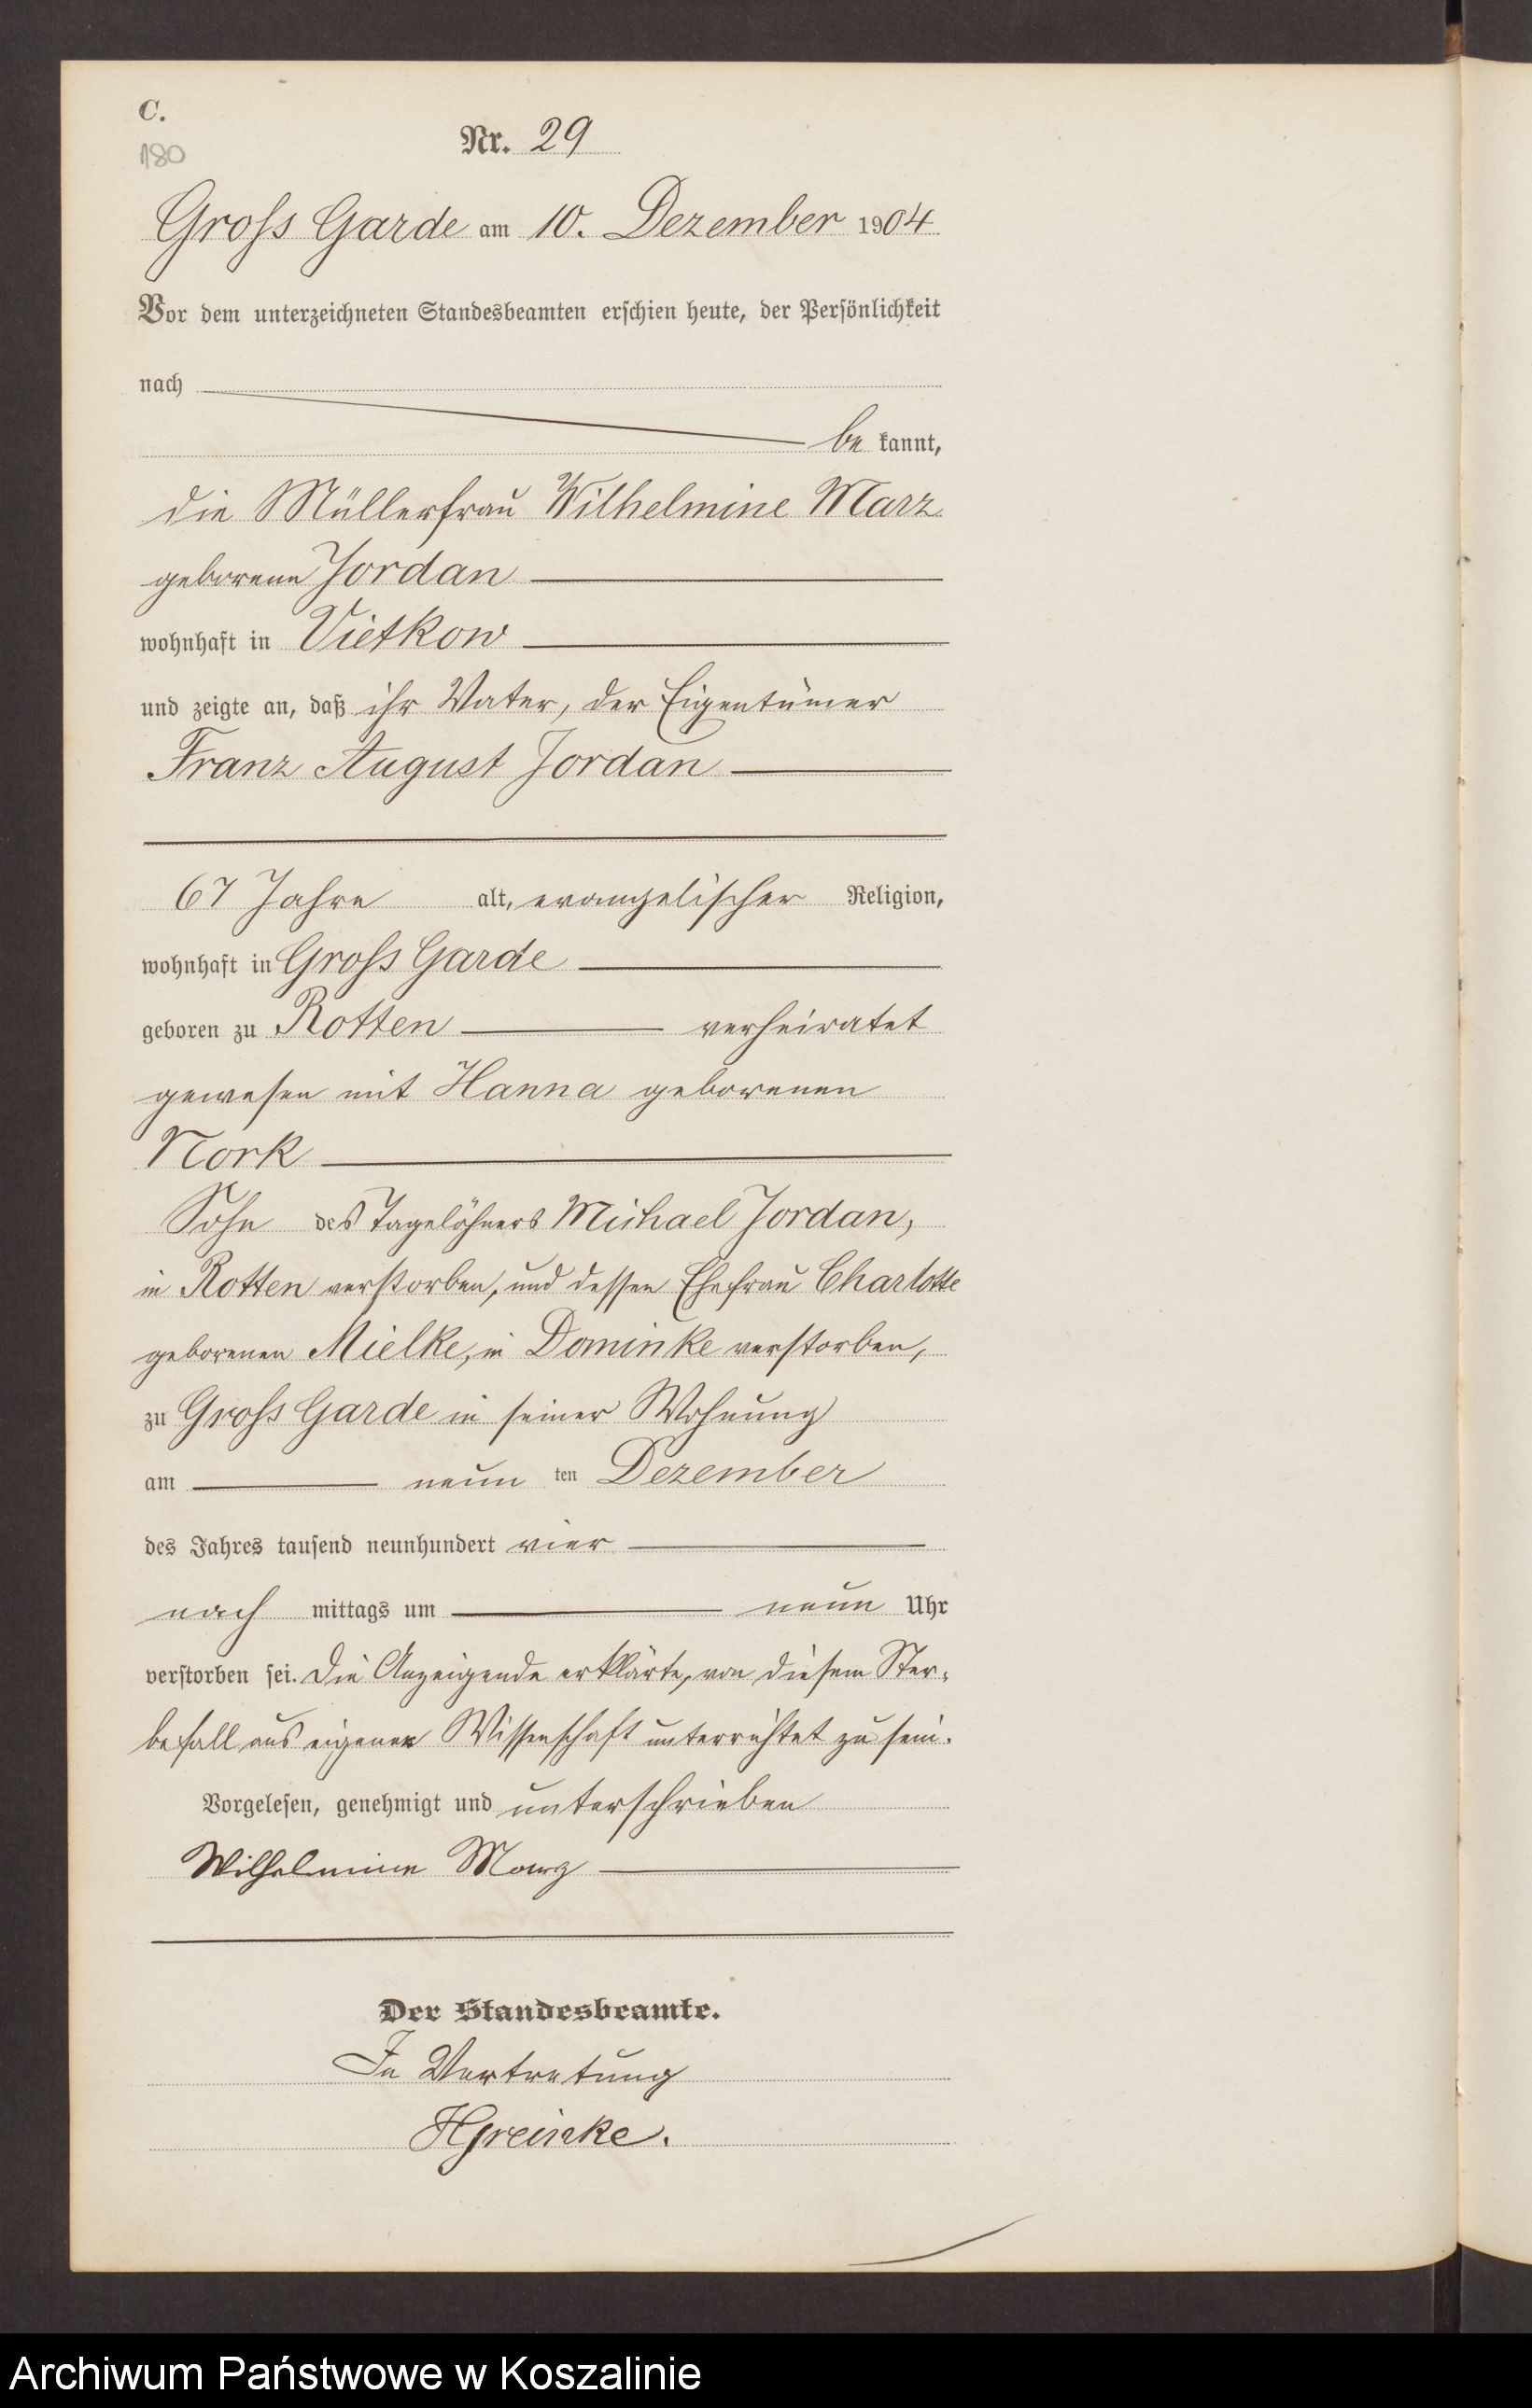 C.
180
Nr. 29
Gross Garde am 10. Dezember 1904
Vor dem unterzeichneten Standesbeamten erschien heute, der Persönlichkeit
nach
be kannt,
die Müllerfrau Wilhelmine Marz
geborene Jordan
wohnhaft in Vietkow
und zeigte an, daß ihr Vater, der Eigentümer
Franz August Jordan
67 Jahre alt, evangelischer Religion,
wohnhaft in Gross Garde
geboren zu Rotten verheiratet
gewesen mit Hanna geborenen
Nork
Sohn des Tagelöhners Michael Jordan,
in Rotten verstorben, und dessen Ehefrau Charlotte
geborenen Mielke, in Dominke verstorben,
zu Gross Garde in seiner Wohnung
am neun ten Dezember
des Jahres tausend neunhundert vier
nach mittags um neun Uhr
verstorben sei. Die Anzeigende erklärte, von diesem Ster-
befall aus eigener Wissenschaft unterrichtet zu sein.
Vorgelesen, genehmigt und unterschrieben
Wilhelmine Marz
Der Standesbeamte.
In Vertretung
Archiwum Państwowe w Koszalinie